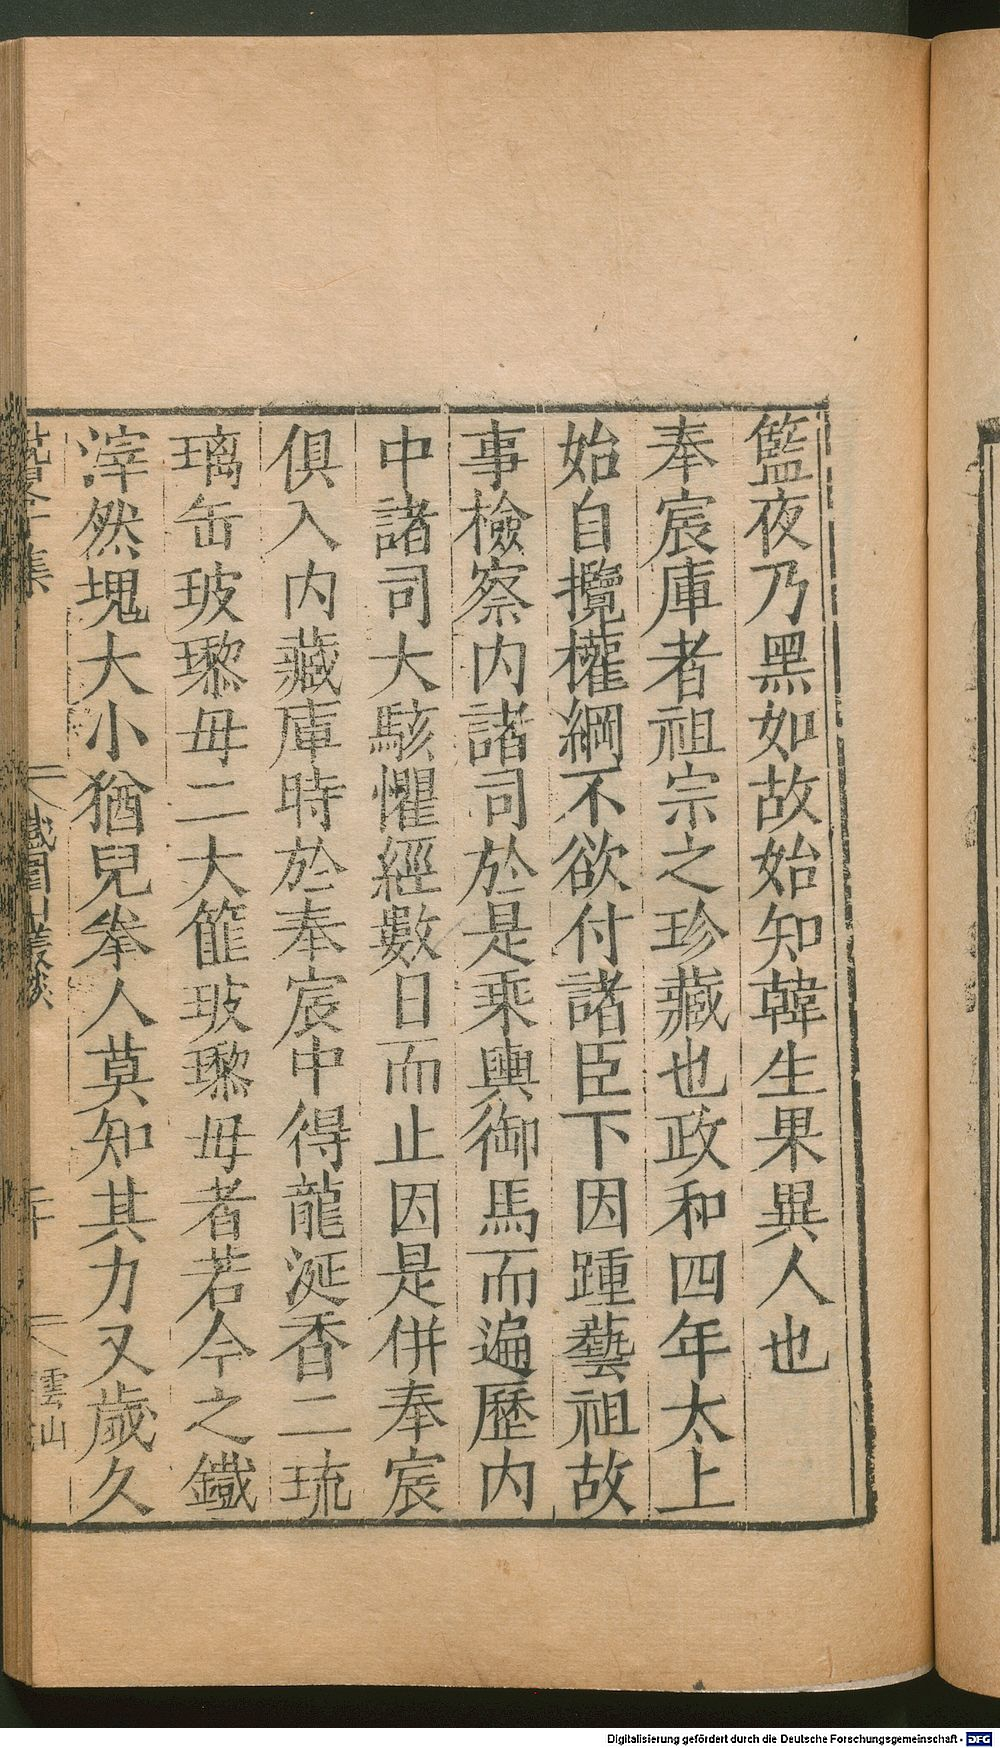 籃夜乃黑如故始知韓生果異人也
奉宸庫者祖宗之珍藏也政和四年太上
始自攬權綱不欲付諸臣下因踵藝祖故
事檢察内諸司於是乘輿御馬而遍歷内
中諸司大駭懼經數日而止因是併奉宸
俱入内藏庫時於奉宸中得龍涎香二琉
璃缶玻瓈毋二大篚玻瓈毋者若今之鐵
滓然塊大小猶兒拳人莫知其力又歲久
集
鐵圍山叢談
雲山
Digitalisierung gefördert durch die Deutsche Forschungsgemeinschaft - DFG